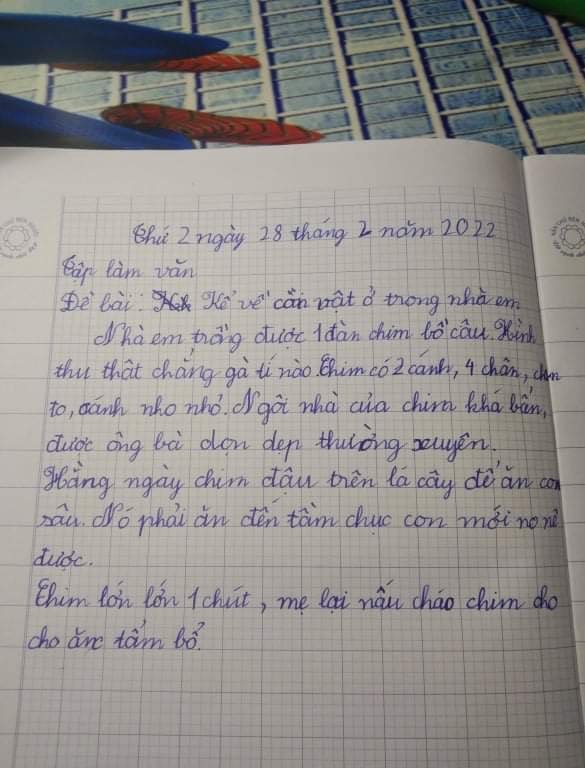 Thứ 2 ngày 28 tháng 2 năm 2022
Tập làm văn
Đề bài: Kể về cần vật ở trong nhà em
Nhà em trồng được 1 đàn chim bồ câu. Hình
thu thật chẳng gà tí nào. Chim có 2 cánh, 4 chân, chim
to, cánh nho nhỏ. Ngôi nhà của chim khá bẩn,
được ông bà dọn dẹp thường xuyên.
Hằng ngày chim đậu trên lá cây để ăn con
sâu. Nó phải ăn đến tầm chục con mới no nê
được.
Chim lớn lớn 1 chút, mẹ lại nấu cháo chim cho
cho ăn tẩm bổ.